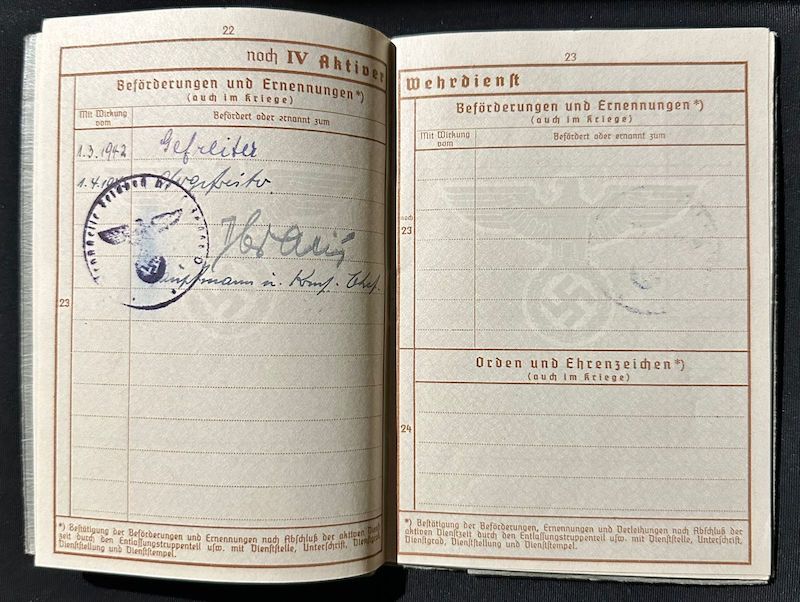 22
noch IV Aktiver
Beförderungen und Ernennungen*)
(auch im Kriege)
Mit Wirkung vom
Befördert oder ernannt zum
1.3.1942 Gefreiter
1.4.
Hauptmann u. Komp. Chef.
23
*) Bestätigung der Beförderungen und Ernennungen nach Abschluß der aktiven Dienst-
zeit durch den Entlassungstruppenteil usw. mit Dienststelle, Unterschrift, Dienstgrad,
Dienststellung und Dienststempel.
23
Wehrdienst
Beförderungen und Ernennungen*)
(auch im Kriege)
Mit Wirkung vom
Befördert oder ernannt zum
noch
23
Orden und Ehrenzeichen*)
(auch im Kriege)
24
*) Bestätigung der Beförderungen, Ernennungen und Verleihungen nach Abschluß der
aktiven Dienstzeit durch den Entlassungstruppenteil usw. mit Dienststelle, Unterschrift,
Dienstgrad, Dienststellung und Dienststempel.